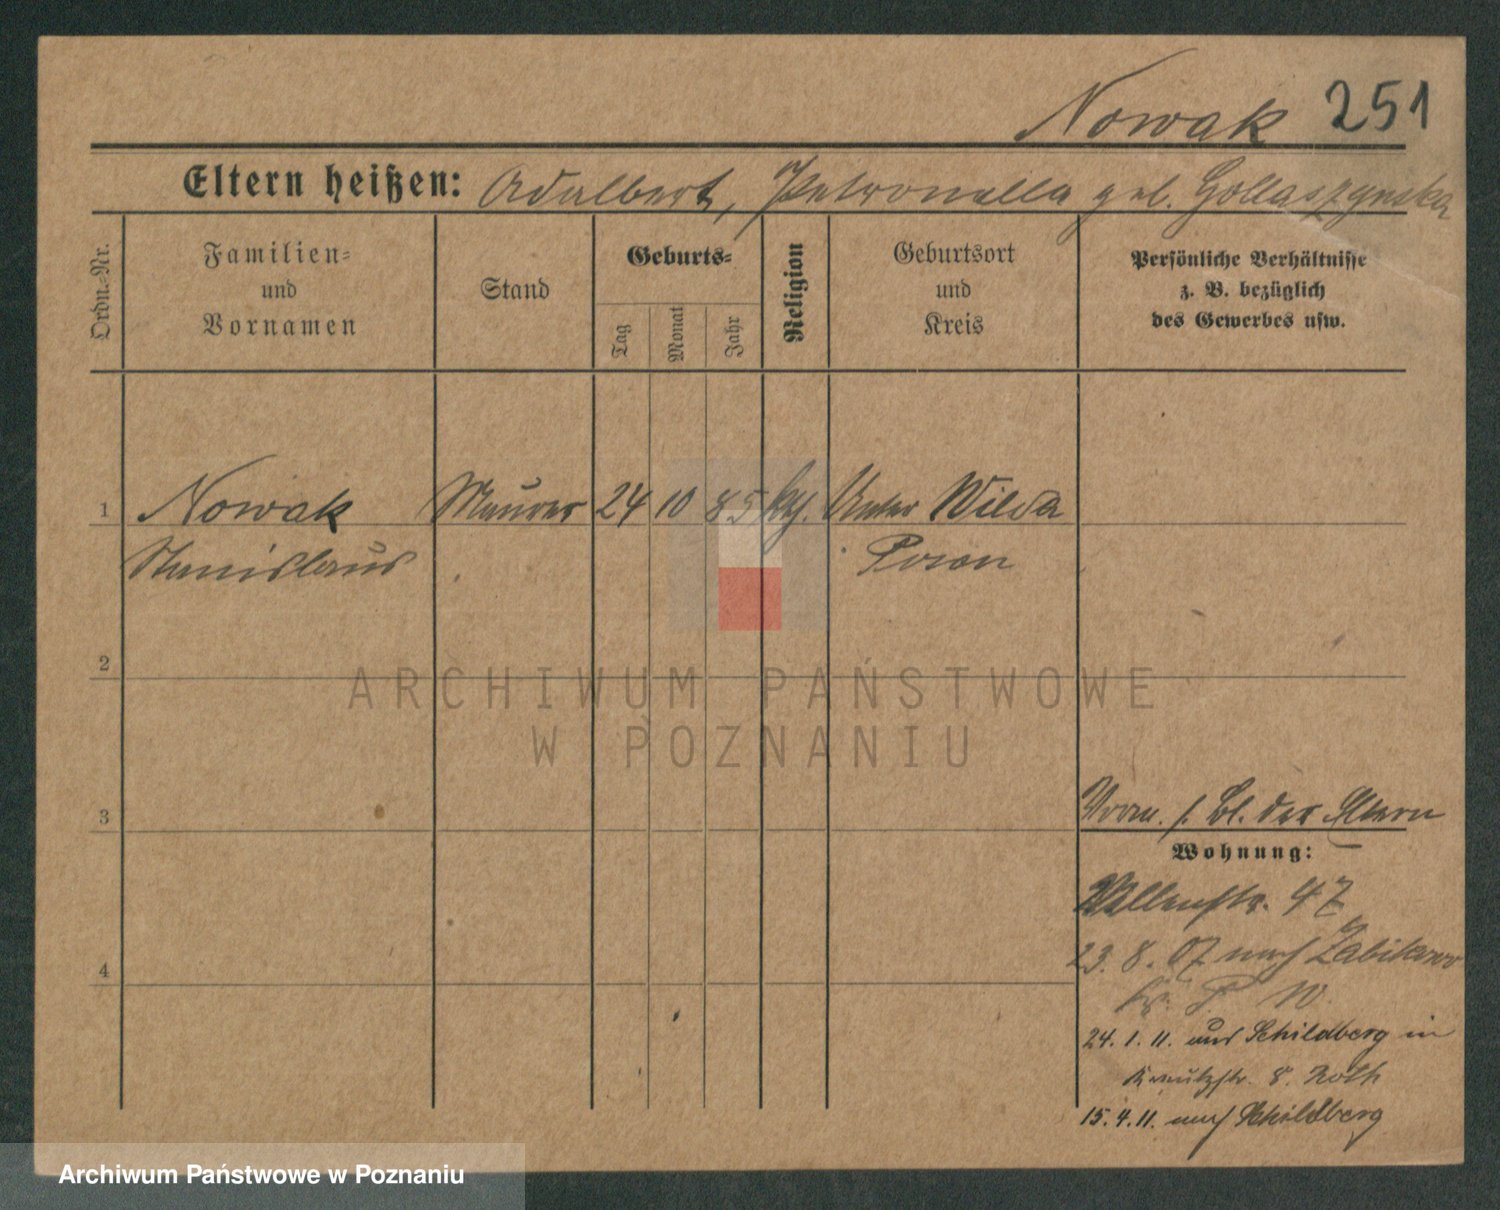 Nowak 251
Eltern heißen: Adalbert, Petronella geb. Gollaszynska
Ordn.-Nr.
Familien-
und
Vornamen
Stand
Geburts-
Tag
Monat
Jahr
Religion
Geburtsort
und
Kreis
Persönliche Verhältnisse
z. B. bezüglich
des Gewerbes usw.
1 Nowak Maurer 24 10 85 kth. Unter Wilda
Stanislaus Posen
2
ARCHIWUM PAŃSTWOWE
W POZNANIU
3
Bl. der Eltern
Wohnung:
47
4
23. 8. 07 nach Zabikowo
Kr. P W.
24. 1. 11. aus Schildberg in
8. Roth
15. 4. 11. nach Schildberg
Archiwum Państwowe w Poznaniu